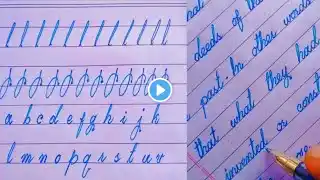 a b c d e f g h i j k
l m n o p q r s t u v
that
deeds of tha
past. In other words
that what they had
invented or const